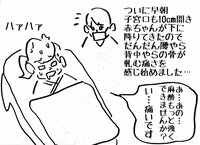 ついに早朝
子宮口も10cm開き
赤ちゃんが下に
降りてきたので
だんだん腰やら
背中やらの骨が
軋む痛みを
感じ始めました…
ハァハァ
あ…あの…もう少し強く
麻酔
できませんか?
い…痛いです